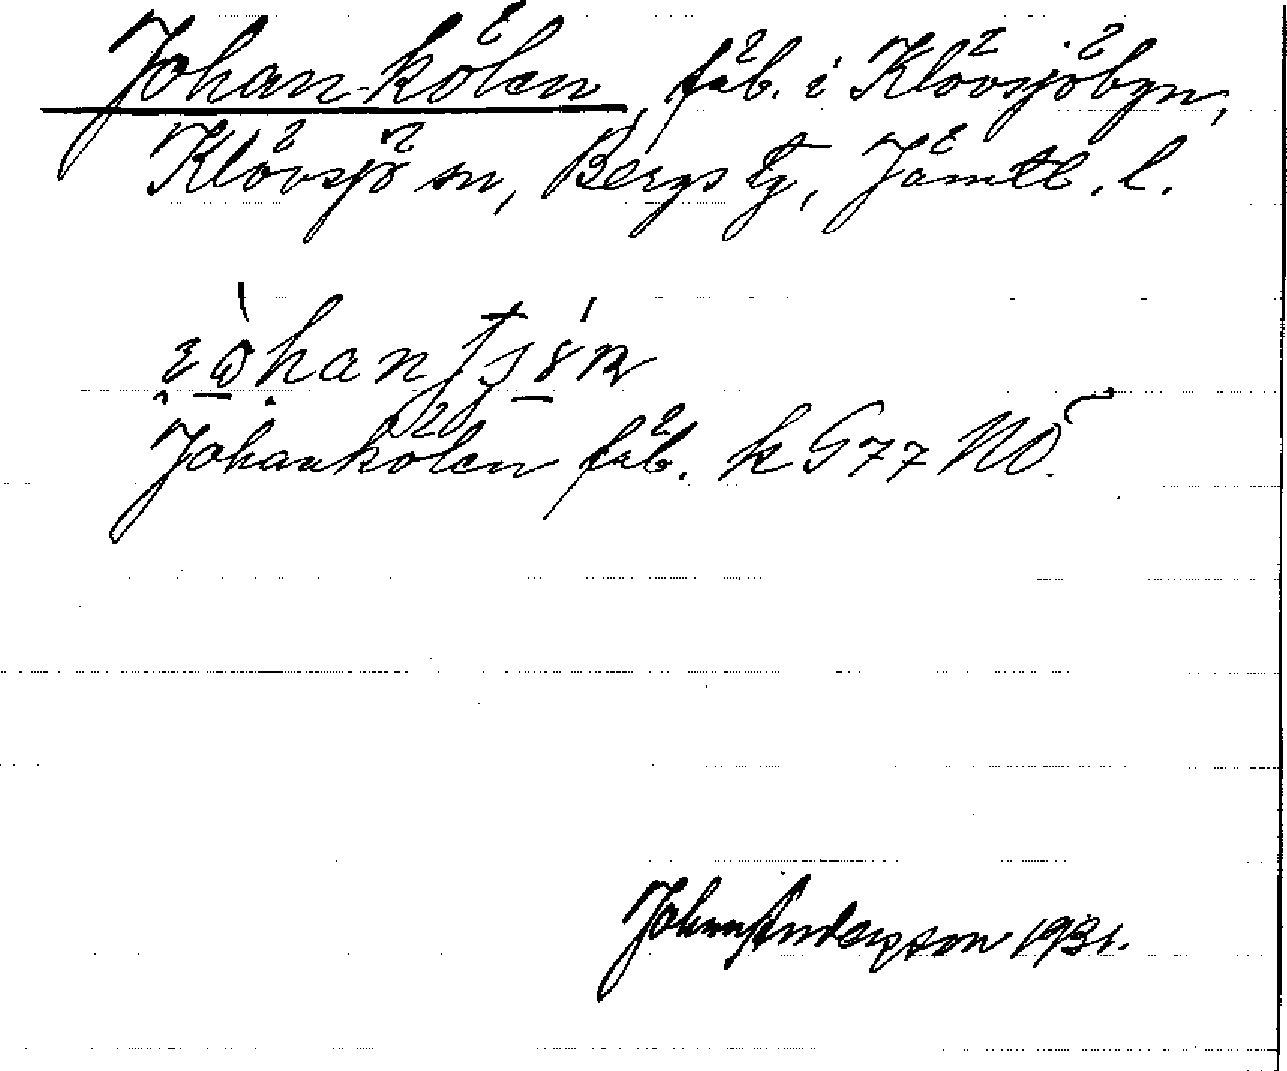 Johan-kölen, fäb. i Klövsjöbyn,
Klövsjö sn, Bergs tg, Jämtl. l.
Johankölen fäb. k G77 NO.
John Andersson 1931.